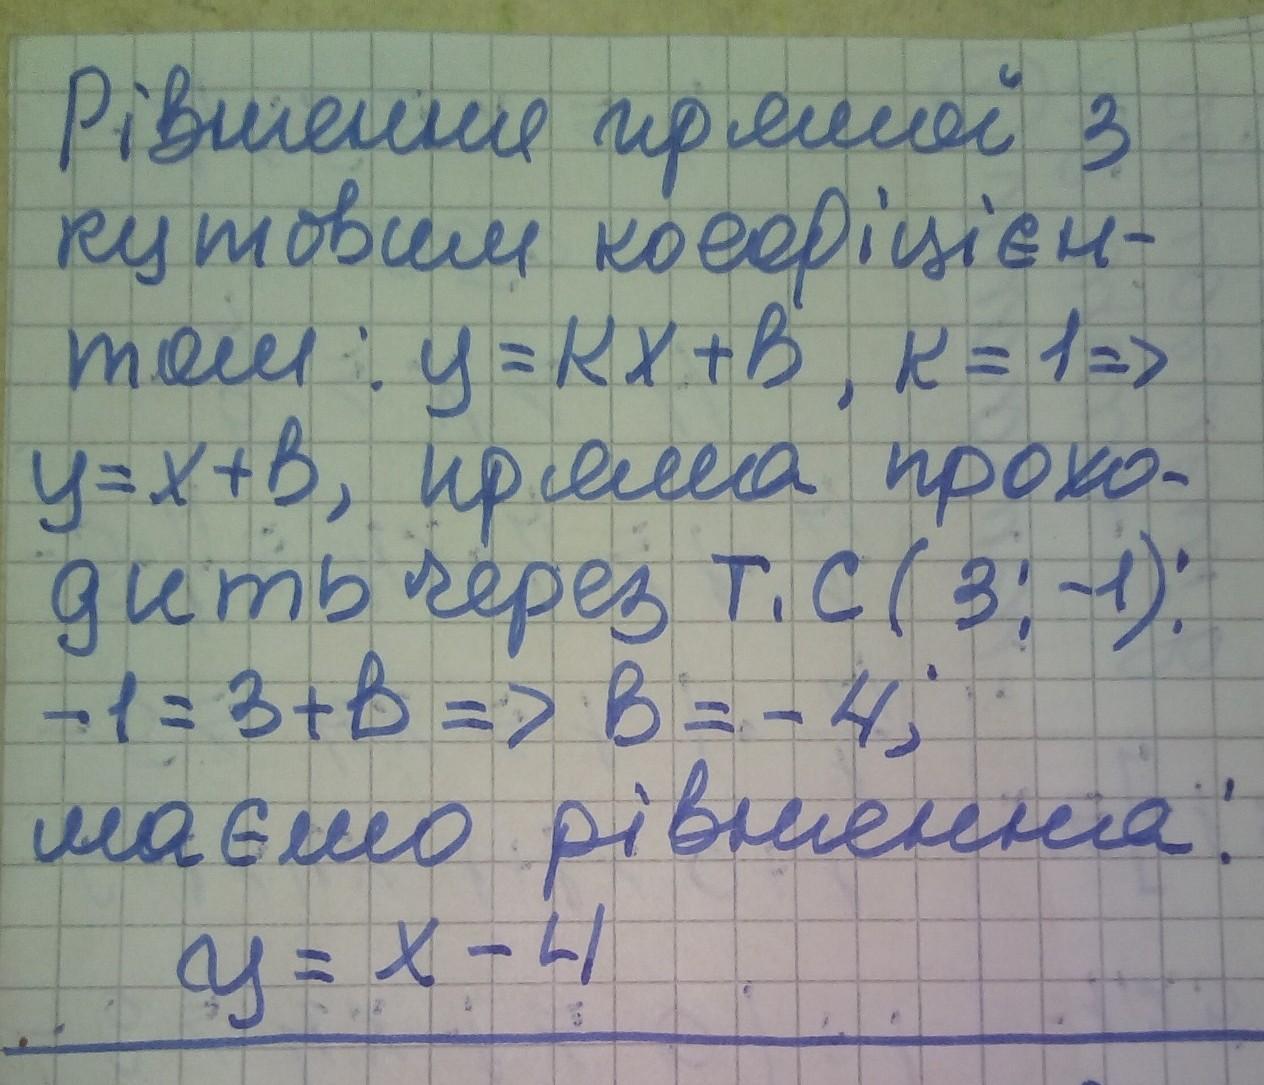 Рівняння прямої з
кутовим коефіцієн-
том: y=kx+в, к=1=>
y=x+в, пряма прохо-
дить через т. С(3;-1):
-1=3+в => в=-4;
маємо рівняння:
y=x-4